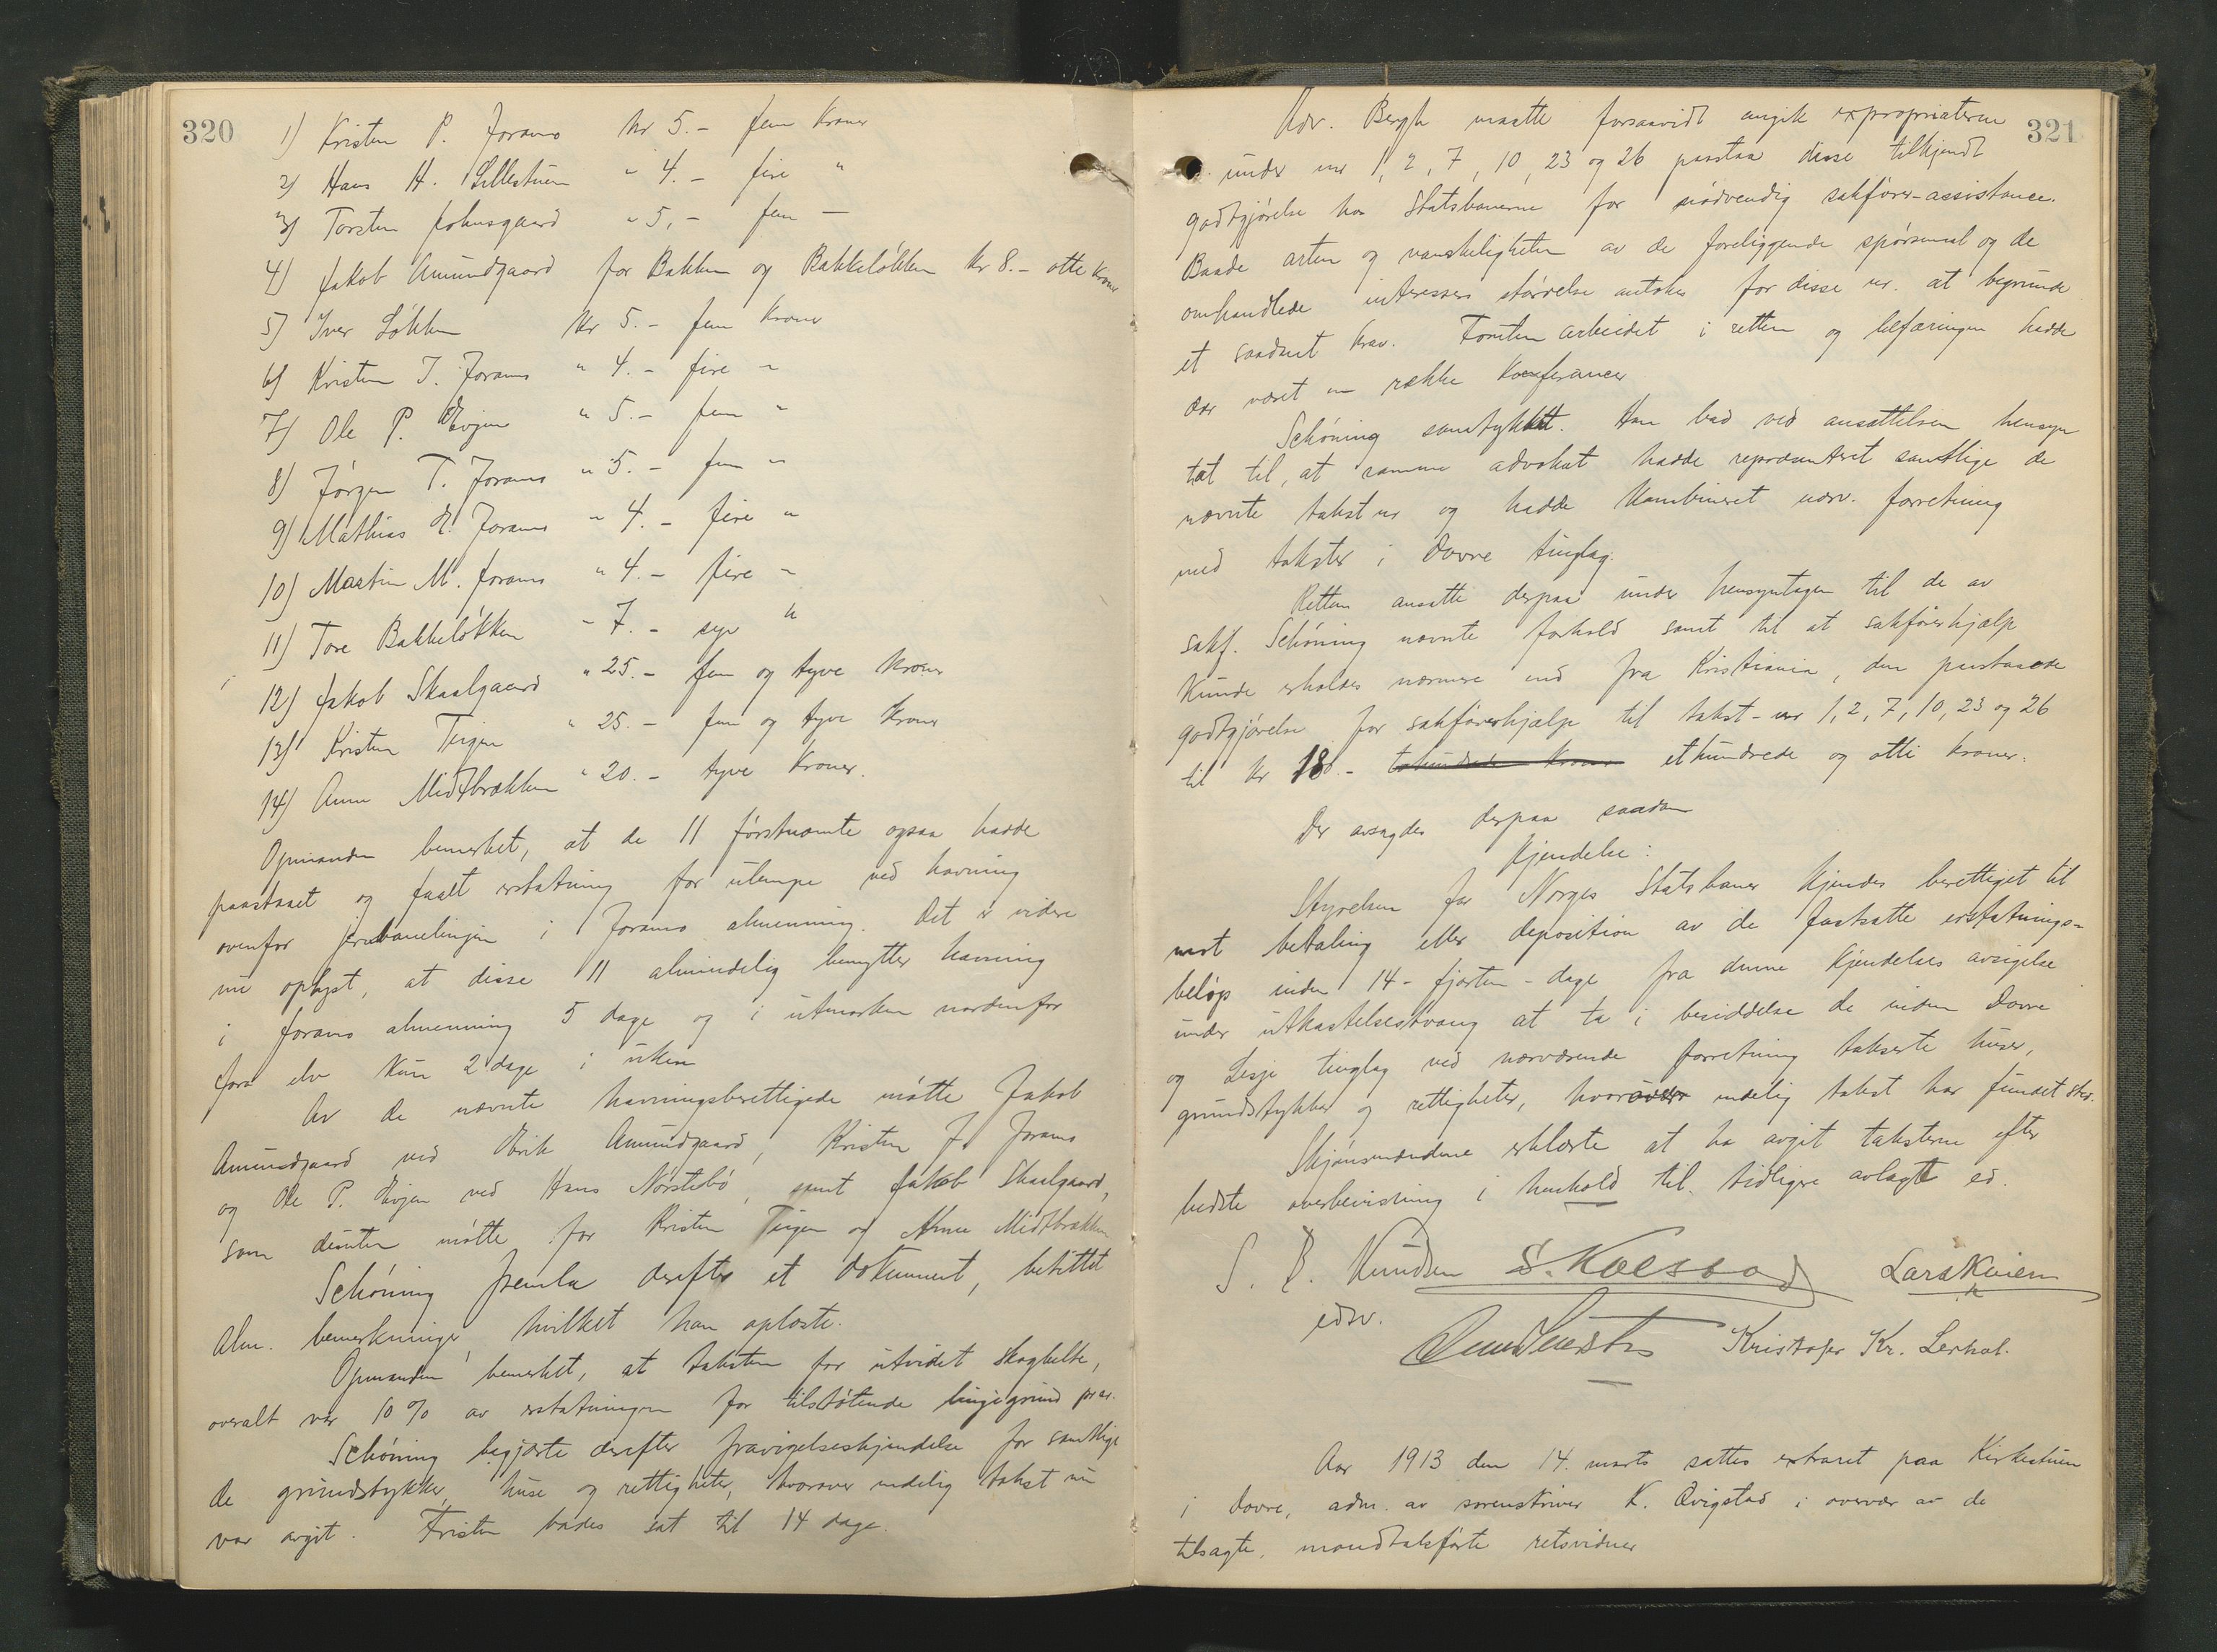 320
1) Kristen P. Joramo Kr 5.- fem kroner
2) Hans H. Lillestuen " 4.- fire "
3) Torsten Johnsgaard " 5,- fem -
4) Jakob Amundgaard for Bakken og Bakkeløkken kr 8.- otte kroner
5) Iver Løkken kr 5.- fem kroner
6) Kristen J. Joramo " 4.- fire "
7) Ole P. Evjen " 5.- fem "
8) Jørgen T. Joramo " 5.- fem "
9) Mathias E. Joramo " 4.- fire "
10) Martin M. Joramo " 4.- fire "
11) Tore Bakkeløkken " 7.- syv "
12) Jakob Skaalgaard " 25.- fem og tyve kroner
13) Kristen Teigen " 25.- fem og tyve kroner
14) Anne Midtbrækken " 20.- tyve kroner.
Opmanden bemerket, at de 11 førstnævnte ogsaa hadde
paastaaet og faat erstatning for ulempe ved havning
ovenfor jernbanelinjen i Joramo almenning. Det er videre
nu oplyst, at disse 11 almindelig benytter havning
i Joramo almenning 5 dage og i utmarken nordenfor
Jora elv kun 2 dage i uken
Av de nævnte havningsberettigede møtte Jakob
Amundgaard ved Erik Amundgaard, Kristen J. Joramo
og Ole P. Evjen ved Hans Nørstebø, samt Jakob Skaalgaard,
som desuten møtte for Kristen Teigen og Anne Midtbrækken
Schøning fremla derefter et dokument, betittet
Alm. bemerkninger, hvilket han oplæste.
Opmanden bemerket, at taksten for utvidet skogbelte,
overalt var 10 % av erstatningen for tilstøtende linjegrund pr ar.
Schøning begjærte derefter fravigelseskjendelse for samtlige
de grundstykker, huse og rettigheter, hvorover endelig takst nu
var avgit. Fristen bades sat til 14 dage.
321
Adv. Bergh maatte forsaavidt angik expropriaterne
under nr 1, 2, 7, 10, 23 og 26 paastaa disse tilkjendt
godtgjørelse hos Statsbanerne for nødvendig sakfører-assistance.
Baade arten og vanskeligheten av de foreliggende spørsmaal og de
omhandlede interessers størrelse antokes for disse nr. at begrunde
et saadant krav. Foruten arbeidet i retten og befaringen hadde
der været en række konferancer
Schøning samtykket. Han bad ved ansættelsen hensyn
tat til, at samme advokat hadde repræsentret samtlige de
nævnte takst nr og hadde kombineret nærv. forretning
med takster i Dovre tinglag.
Retten ansatte derpaa under hensyntagen til de av
sakf. Schøning nævnte forhold samt til at sakførerhjælp
kunde erholdes nærmere end fra Kristiania, den paastaaede
godtgjørelse for sakførerhjælp til takst-nr 1, 2, 7, 10, 23 og 26
til kr 180.- tohundrede kroner ethundrede og otti kroner.
Der avsagdes derpaa saadan
Kjendelse:
Styrelsen for Norges Statsbaner kjendes berettiget til
mot betaling eller deposition av de fastsatte erstatnings-
beløp inden 14 - fjorten - dage fra denne kjendelses avsigelse
under utkastelsestvang at ta i besiddelse de inden Dovre
og Lesje tinglag ved nærværende forretning takserte huser,
grundstykker og rettigheter, hvorover endelig takst har fundet sted.
Skjønsmændene erklærte at ha avgit taksterne efter
bedste overbevisning i henhold til tidligere avlagt ed.
S. B. Knudsen S. Kolstad Lars Kvien
edsv.
Kristofer Kr. Lerhol.
Aar 1913 den 14. marts sattes extraret paa Kirkestuen
i Dovre, adm. av sorenskriver K. Qvigstad i overvær av de
tilsagte, mandtalsførte retsvidner